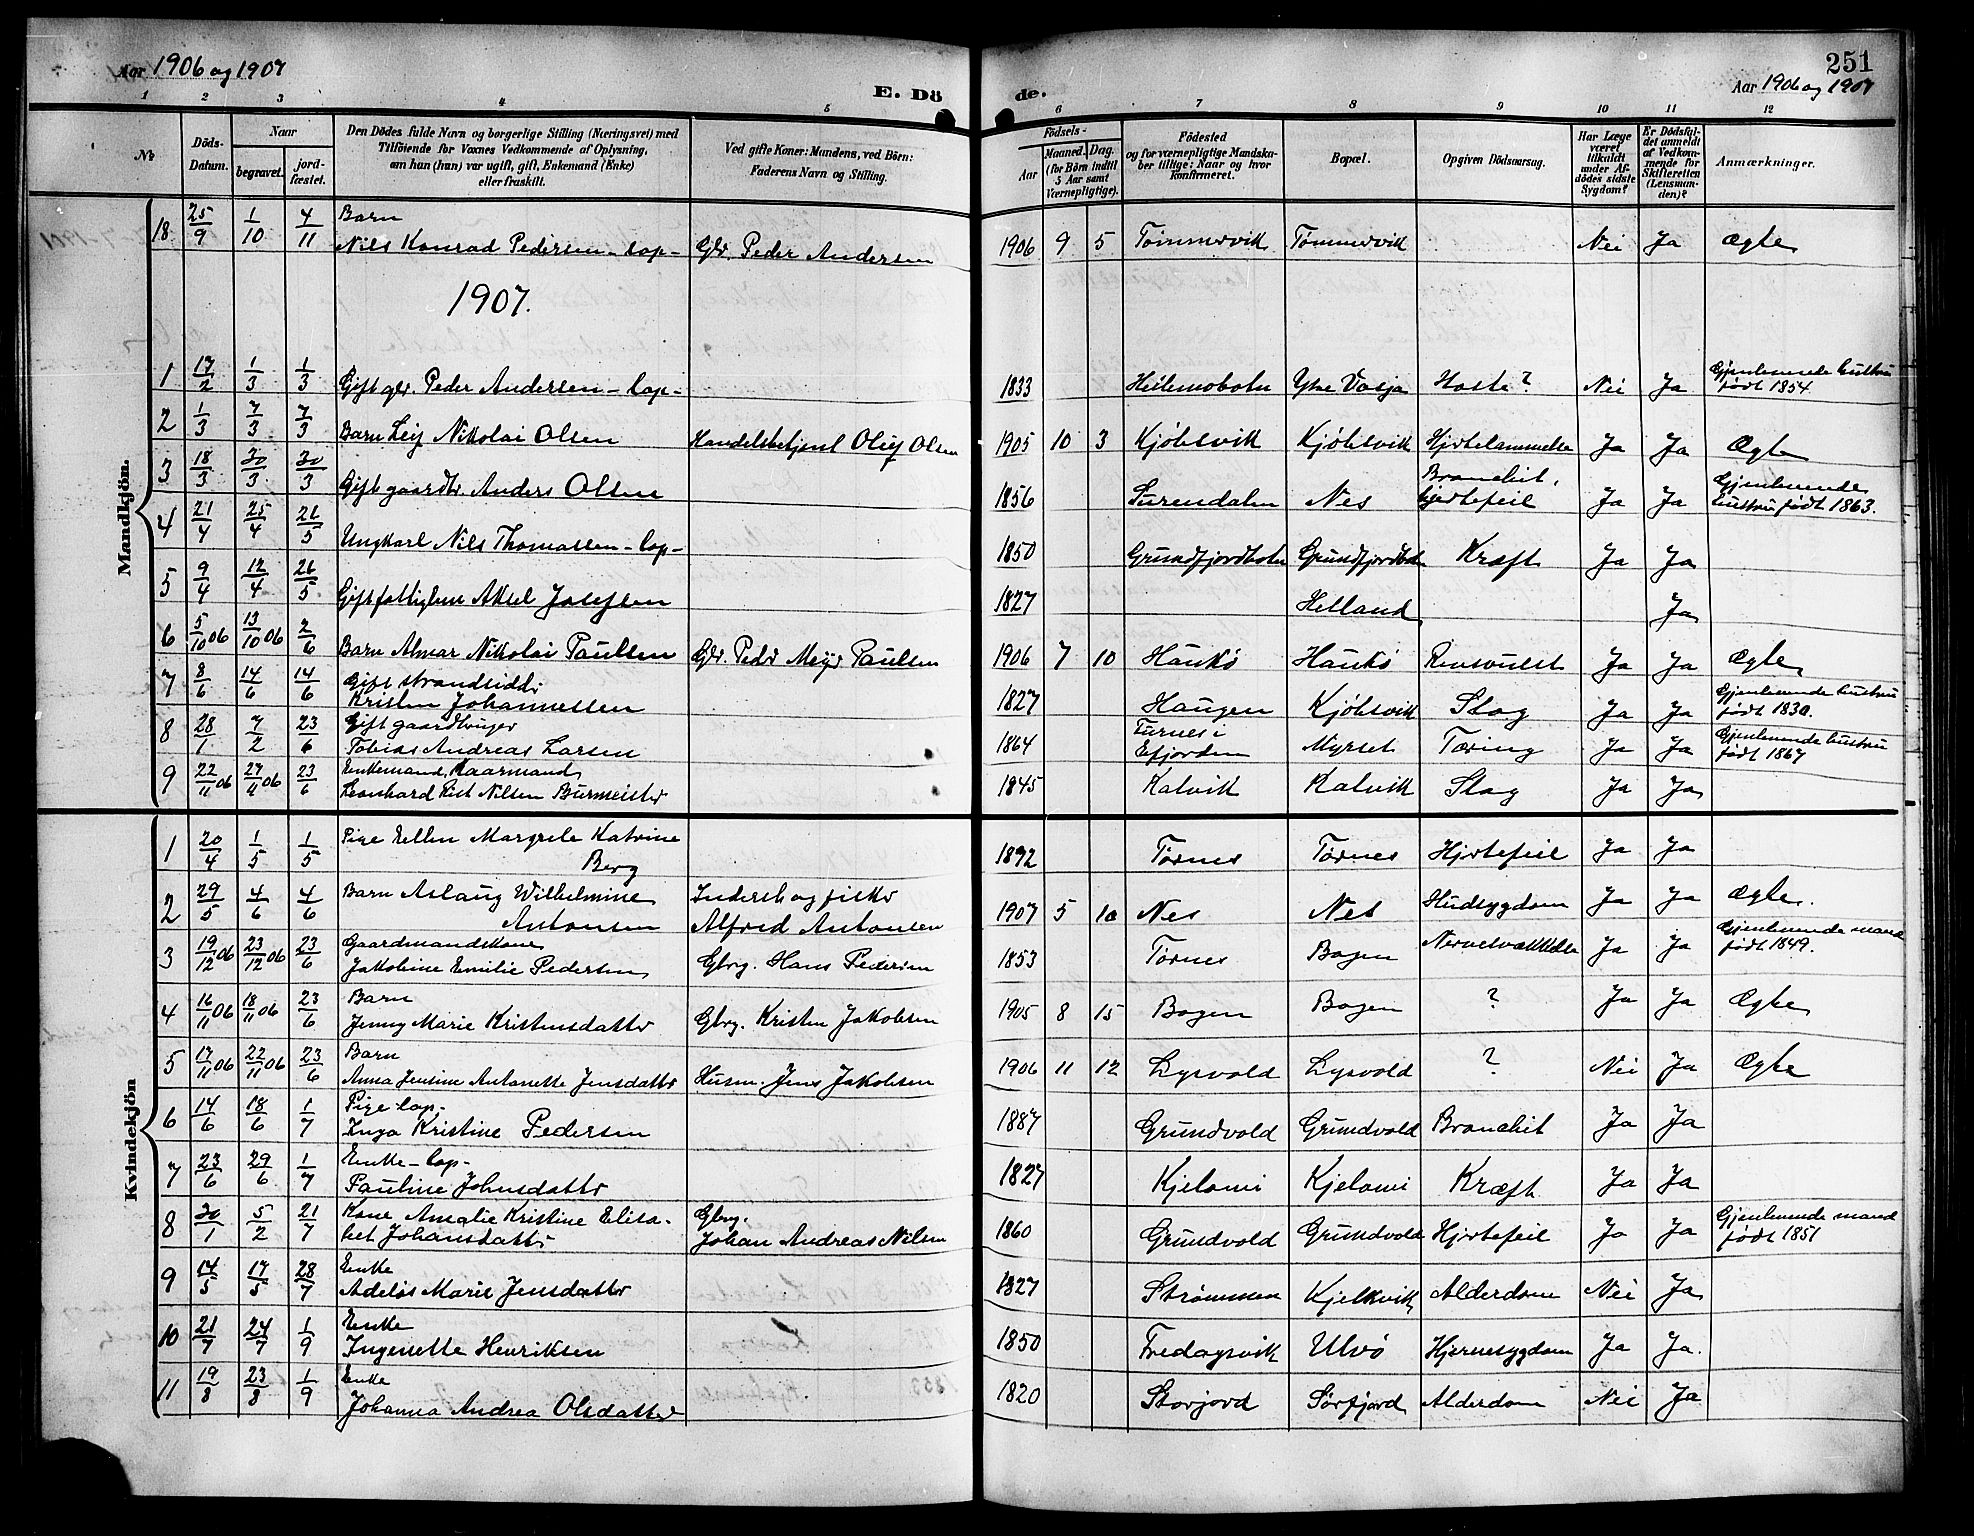 Aar 1906 og 1907
E. Dö
de.
251
Aar 1906 og 1907
1 2 3 4 5 6 7 8 9 10 11 12
No
Döds-Datum.
Naar
begravet.
jord-fæstet.
Den Dödes fulde Navn og borgerlige Stilling (Næringsvei) med
Tilföiende for Voxnes Vedkommende af Oplysning,
om han (hun) var ugift, gift, Enkemand (Enke)
eller fraskilt.
Ved gifte Koner: Mandens, ved Börn:
Faderens Navn og Stilling.
Födsels-
Aar
Maaned. Dag.
(for Börn indtil
5 Aar samt
Værnepligtige).
Födested
og for værnepligtige Mandska-
ber tillige: Naar og hvor
konfirmeret.
Bopæl.
Opgiven Dödsaarsag.
Har Læge
været
tilkaldt
under Af-
dödes sidste
Sygdom?
Er Dödsfal-
det anmeldt
af Vedkom-
mende for
Skifteretten
(Lensman-
den)?
Anmærkninger.
Mandkjön.
18 25/9 1/10 4/11 Barn
Nils Konrad Pedersen - lap - Gbr. Peder Andersen 1906 9 5 Tømmervik Tømmervik Nei Ja Ægte
1907.
1 17/2 1/3 1/3 Gift gbr. Peder Andersen - lap - 1833 Hellemobotn Ytre Vasja Hoste? Nei Ja Gjenlevende hustru
født 1854.
2 1/3 7/3 7/3 Barn Leif Nikolai Olsen Handelsbetjent Oluf Olsen 1905 10 3 Kjøbsvik Kjøbsvik Hjertelammelse Ja Ja Ægte
3 18/3 30/3 30/3 Gift gaardbr. Anders Olsen 1856 Surendalen Nes Bronchit,
hjertefeil Ja Ja Gjenlevende
hustru født 1863.
4 21/4 25/4 26/5 Ungkarl Nils Thomassen - lap - 1850 Grundfjordbotn Grundfjordbotn Kræft Ja Ja
5 9/4 12/4 26/5 Gift fattiglem Aksel Josefsen 1827 Helland Ja
6 5/10 06 13/10 06 2/6 Barn Almar Nikolai Paulsen Gbr. Peder Meyer Paulsen 1906 7 10 Haukø Haukø Ja Ja Ægte
7 8/6 14/6 14/6 Gift strandsidder
Kristen Johannessen 1827 Haugen Kjøbsvik Slag Ja Ja Gjenlevende hustru
født 1830.
8 28/1 7/2 23/6 Gift gaardbruger
Tobias Andreas Larsen 1864 Furnes i
Efjorden Myrset Tæring Ja Ja Gjenlevende hustru
født 1867
9 22/11 06 27/11 06 23/6 Enkemand, Kaarmand
Leonhard Kist Nilsen Burmeister 1845 Kalvik Kalvik Slag Ja Ja
Kvindekjön
1 20/4 1/5 1/5 Pige Ellen Margrete Katrine
Berg 1892 Tørnes Tørnes Hjertefeil Ja Ja
2 29/5 4/6 4/6 Barn Aslaug Wilhelmine
Antonsen Inderst og fisker
Alfred Antonsen 1907 5 10 Nes Nes Hudsygdom Ja Ja Ægte.
3 19/12 06 23/12 06 23/6 Gaardmandskone
Jakobine Emilie Pedersen Gbrg. Hans Pedersen 1853 Tørnes Bogen Nervesvækkelse Ja Ja Gjenlevende mand
født 1849.
4 16/11 06 18/11 06 23/6 Barn
Jenny Marie Kristensdatter Gbrg. Kristen Jakobsen 1905 8 15 Bogen Bogen ? Ja Ja Ægte
5 17/11 06 22/11 06 23/6 Barn
Anna Jensine Antonette Jensdatter Husm. Jens Jakobsen 1906 11 12 Lysvold Lysvold ? Nei Ja Ægte
6 14/6 18/6 1/7 Pige lap -
Inga Kristine Pedersen 1887 Grundvold Grundvold Bronchit Ja Ja
7 23/6 29/6 1/7 Enke - lap -
Pauline Johnsdatter 1827 Kjelowi Kjelowi Kræft Ja Ja
8 30/1 5/2 21/7 Kone Amalie Kristine Elisa-
bet Johansdatter Gbrg.
Johan Andreas Nilsen 1860 Grundvold Grundvold Hjertefeil Ja Ja Gjenlevende mand
født 1851
9 14/5 17/5 28/7 Enke
Adelus Marie Jensdatter 1827 Strømmen Kjelkvik Alderdom Nei Ja
10 21/7 24/7 1/9 Enke
Ingenette Henriksen 1850 Fredagsvik Ulvø Hjernesygdom Ja Ja.
11 19/8 23/8 1/9 Enke
Johanna Andrea Olsdatter 1820 Storjord Sørfjord Alderdom Nei Ja